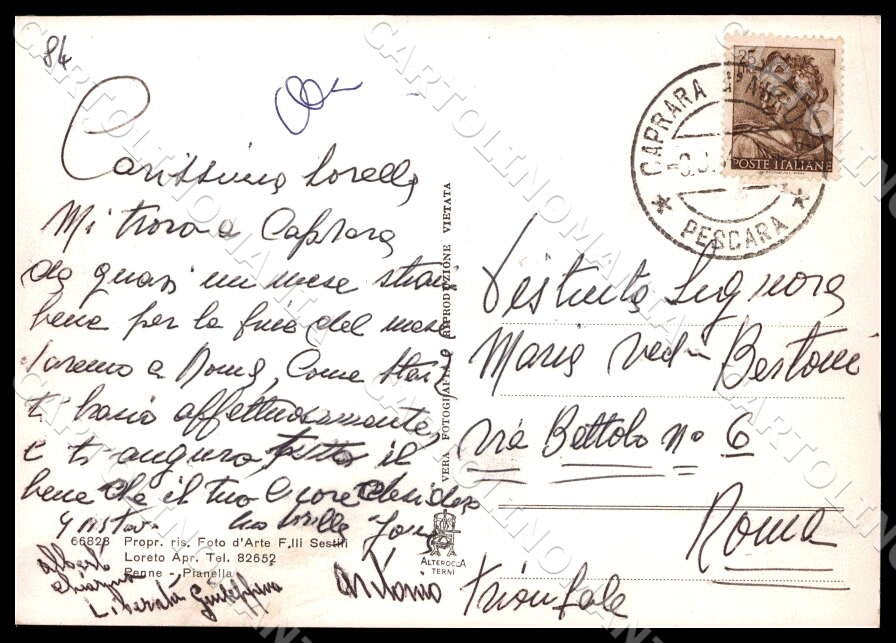 84
Carissima Sorella
Mi trovo a Caprara
da quasi un mese stiamo
bene per la fine del mese
saremo a Roma, Come stai,
ti bacio affettuosamente,
e ti auguro tutto il
bene che il tuo Cuore desidera
tua Sorella
66828 Propr. ris. Foto d'Arte F.lli Sestili
Loreto Apr. Tel. 82652
Penne - Pianella
Alberto
Liberata Giuseppina
Antonio
VERA FOTOGRAFIA RIPRODUZIONE VIETATA
ALTEROCCA
TERNI
CAPRARA D'
PESCARA
25
POSTE ITALIANE
Distinta Signora
Maria ved. Bertoni
via Bettolo n° 6
Roma
Trionfale
CARTOLINOMANIA